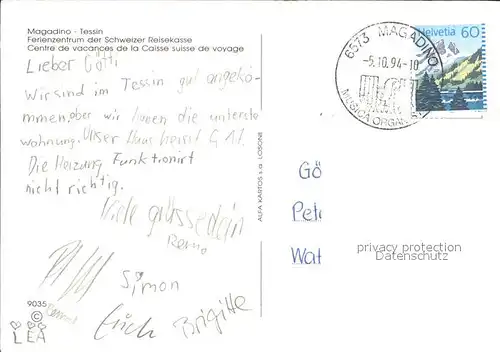 Magadino - Tessin
Ferienzentrum der Schweizer Reisekasse
Centre de vacances de la Caisse suisse de voyage
Lieber Götti
Wir sind im Tessin gut angeko-
mmen, aber wir haben die unterste
wohnung. Unser Haus heisst G A1.
Die Heizung Funktionirt
nicht richtig.
Viele grüsse dein
Remo
Simon
Erich Brigitte
9035
©
LEA
ALFA KARTOS s.a. LOSONE
6573 MAGADINO
-5.10.94-10
MUSICA ORGAN
Helvetia 60
Gö
Pet
Wat
privacy protection
Datenschutz